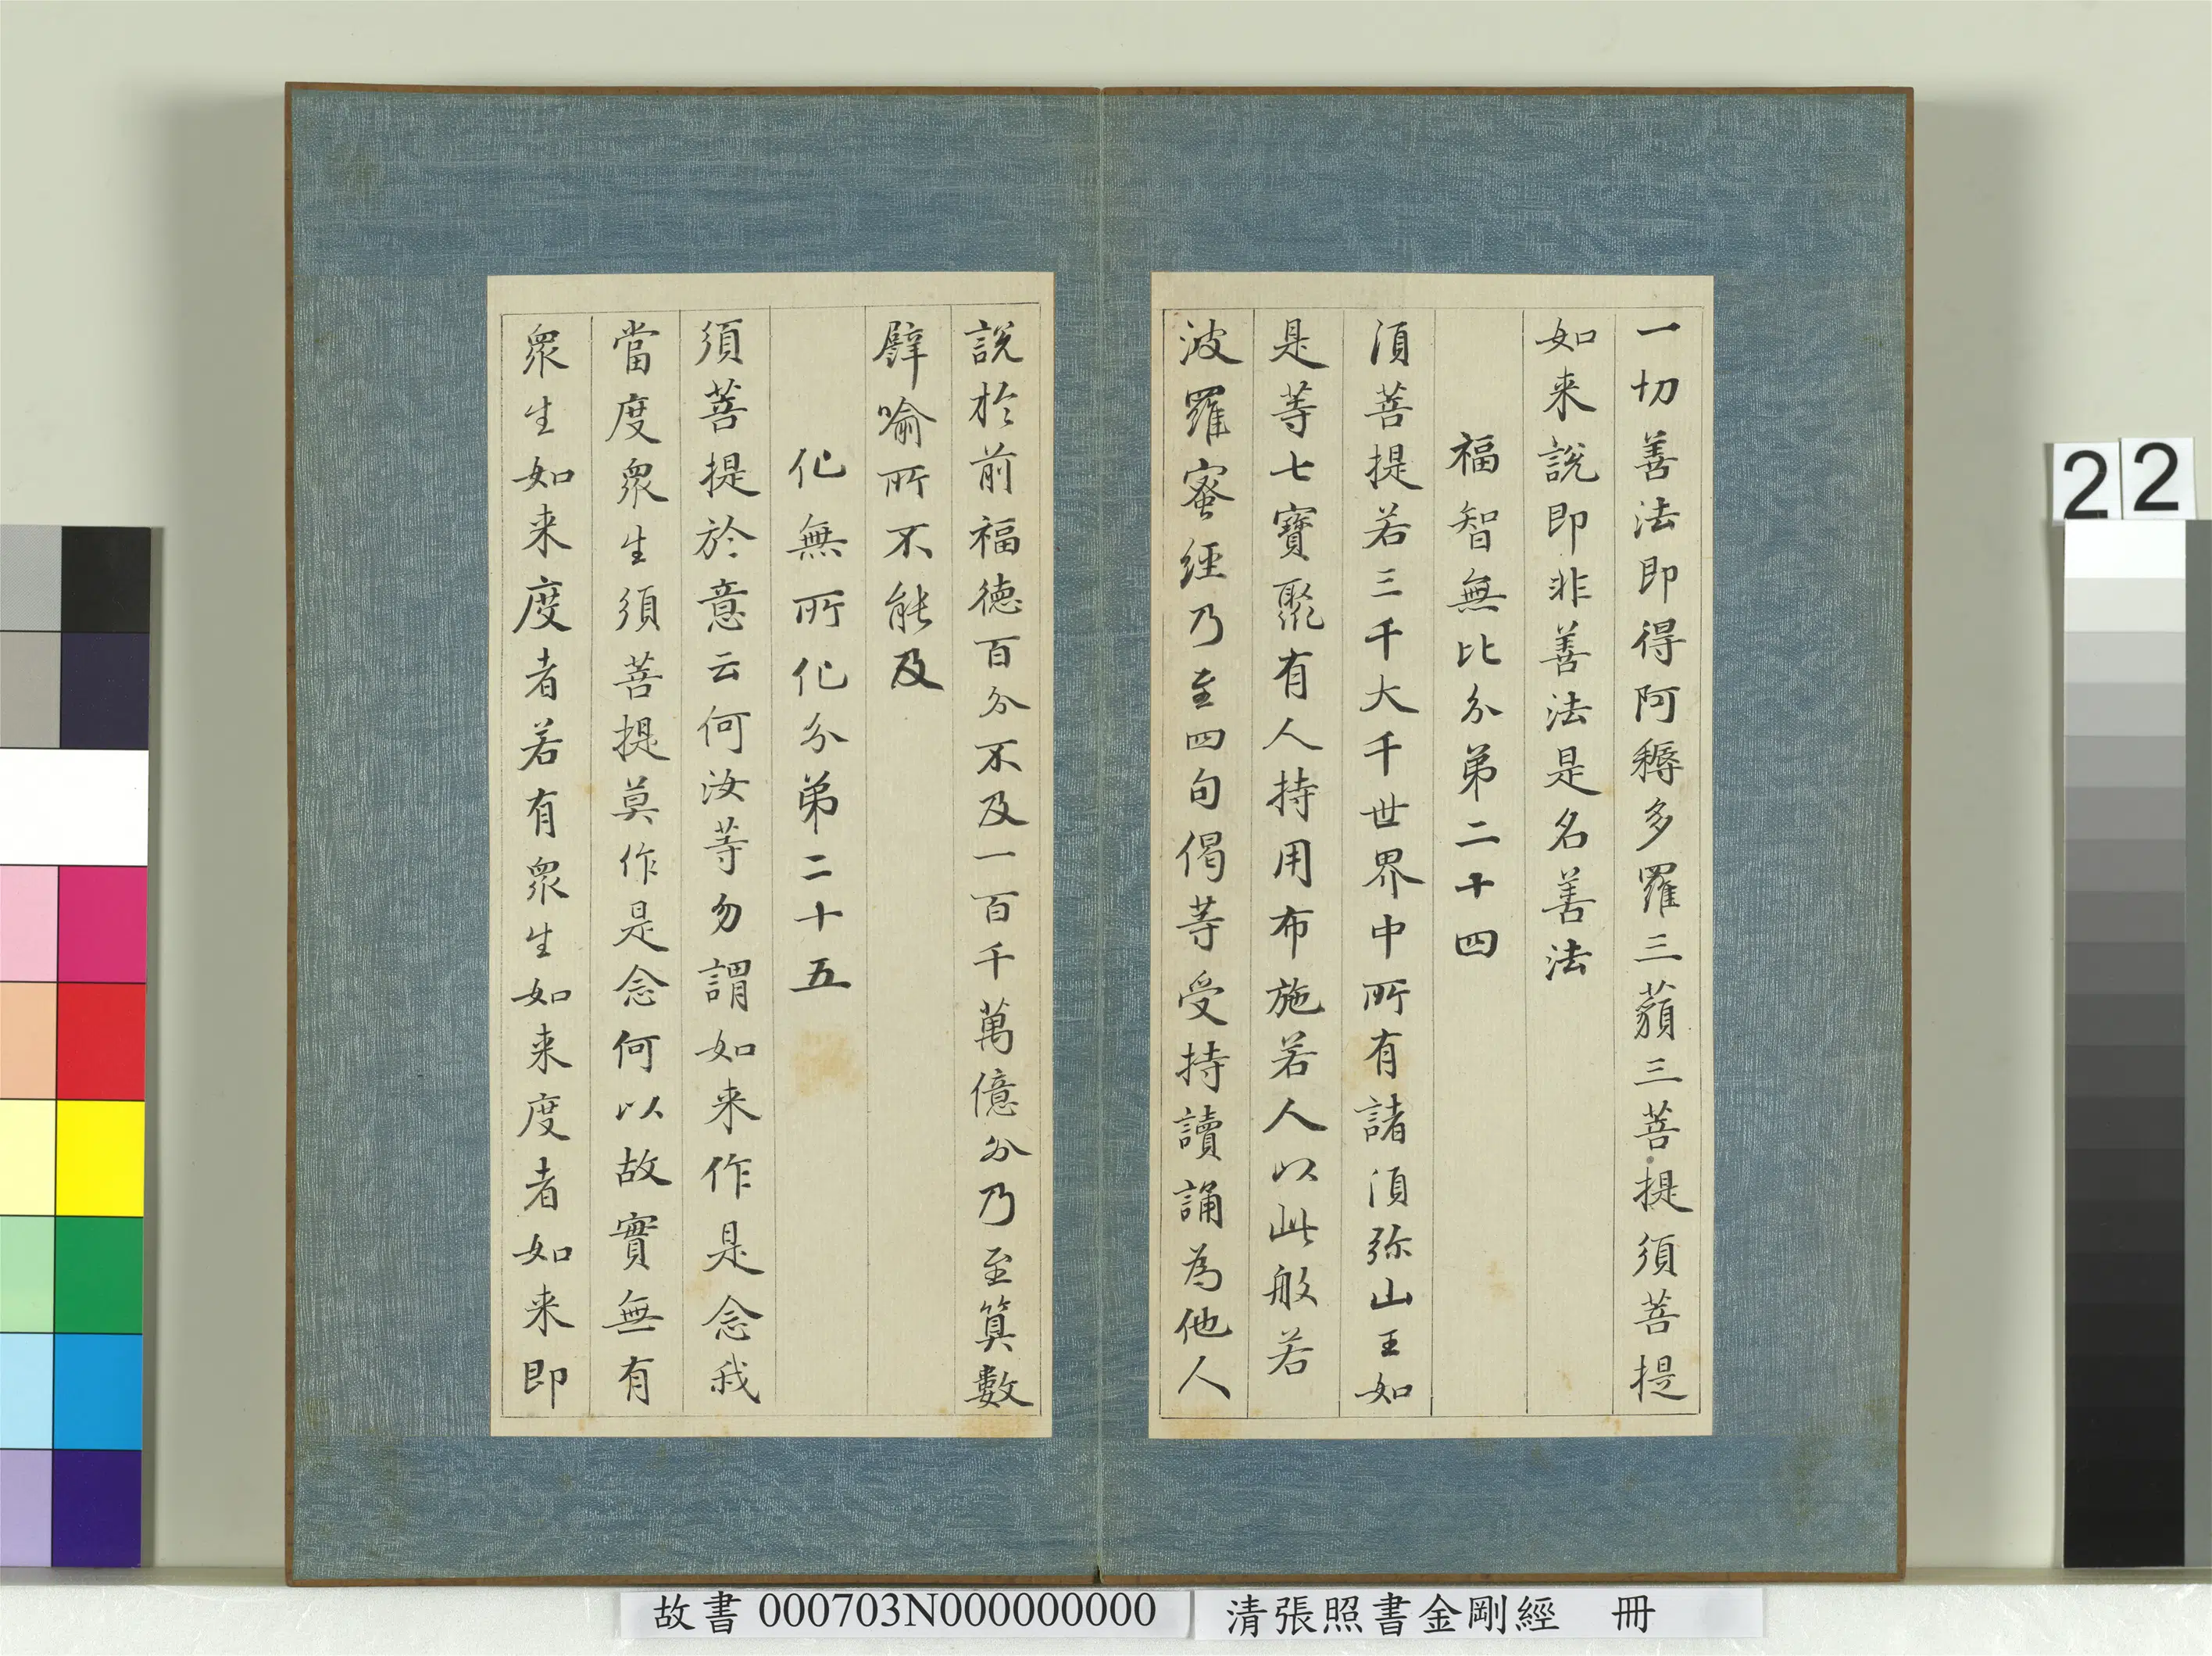 一切善法即得阿耨多羅三藐三菩提須菩提
如来說即非善法是名善法
福智無比分第二十四
須菩提若三千大千世界中所有諸須弥山王如
是等七寶聚有人持用布施若人以此般若
波羅蜜經乃至四句偈等受持讀誦為他人
說於前福德百分不及一百千萬億分乃至算數
譬喻所不能及
化無所化分第二十五
須菩提於意云何汝等勿謂如来作是念我
當度眾生須菩提莫作是念何以故實無有
眾生如来度者若有眾生如来度者如来即
22
故書 000703N000000000
清張照書金剛經 冊